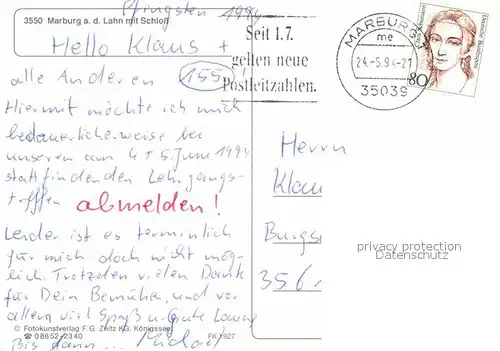 Pfingsten 1994
3550 Marburg a. d. Lahn mit Schloß
Hello Klaus +
alle Anderen (155!)
Hiermit möchte ich mich
bedauerlicherweise bei
unserem am 4+5. Juni 1994
stattfindenden Lehrgangs-
treffen abmelden!
Leider ist es terminlich
für mich doch nicht mög-
lich. Trotzdem vielen Dank
für Dein Bemühen, und vor
allem viel Spaß u. Gute Laune
Bis dann ... Michael
© Fotokunstverlag F.G. Zeitz KG, Königssee
☎ 08652-2340
FK 1927
Seit 1.7.
gelten neue
Postleitzahlen.
MARBURG 1
me
24.-5.94-21
35039
80
Herrn
Klau
Burgs
356
privacy protection
Datenschutz